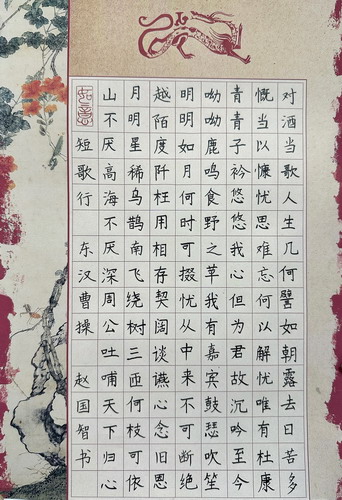 对酒当歌人生几何譬如朝露去日苦多
慨当以慷忧思难忘何以解忧唯有杜康
青青子衿悠悠我心但为君故沉吟至今
呦呦鹿鸣食野之苹我有嘉宾鼓瑟吹笙
明明如月何时可掇忧从中来不可断绝
越陌度阡枉用相存契阔谈讌心念旧恩
月明星稀乌鹊南飞绕树三匝何枝可依
山不厌高海不厌深周公吐哺天下归心
如意
短歌行 东汉曹操 赵国智书